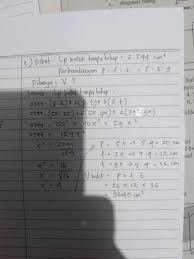 2) Diket : Lp balok tanpa tutup = 2.544 cm²
Perbandingan p : l : t = 5 : 3 : 9
Ditanya = V ?
Jawab = Lp balok tanpa tutup
2544 = (p.l) + 2(p.t) + 2(l.t)
2544 = (5x.3x) + 2(5x.9x) + 2(3x.9x)
2544 = 15x² + 90x² + 54x²
2544 = 159x²
x² = 2544
159
x² = 16
x = √16
x = 4
p = 5x = 5.4 = 20 cm
l = 3x = 3.4 = 12 cm
t = 9x = 9.4 = 36 cm
V balok = p x l x t
= 20 x 12 x 36
= 8640 cm³